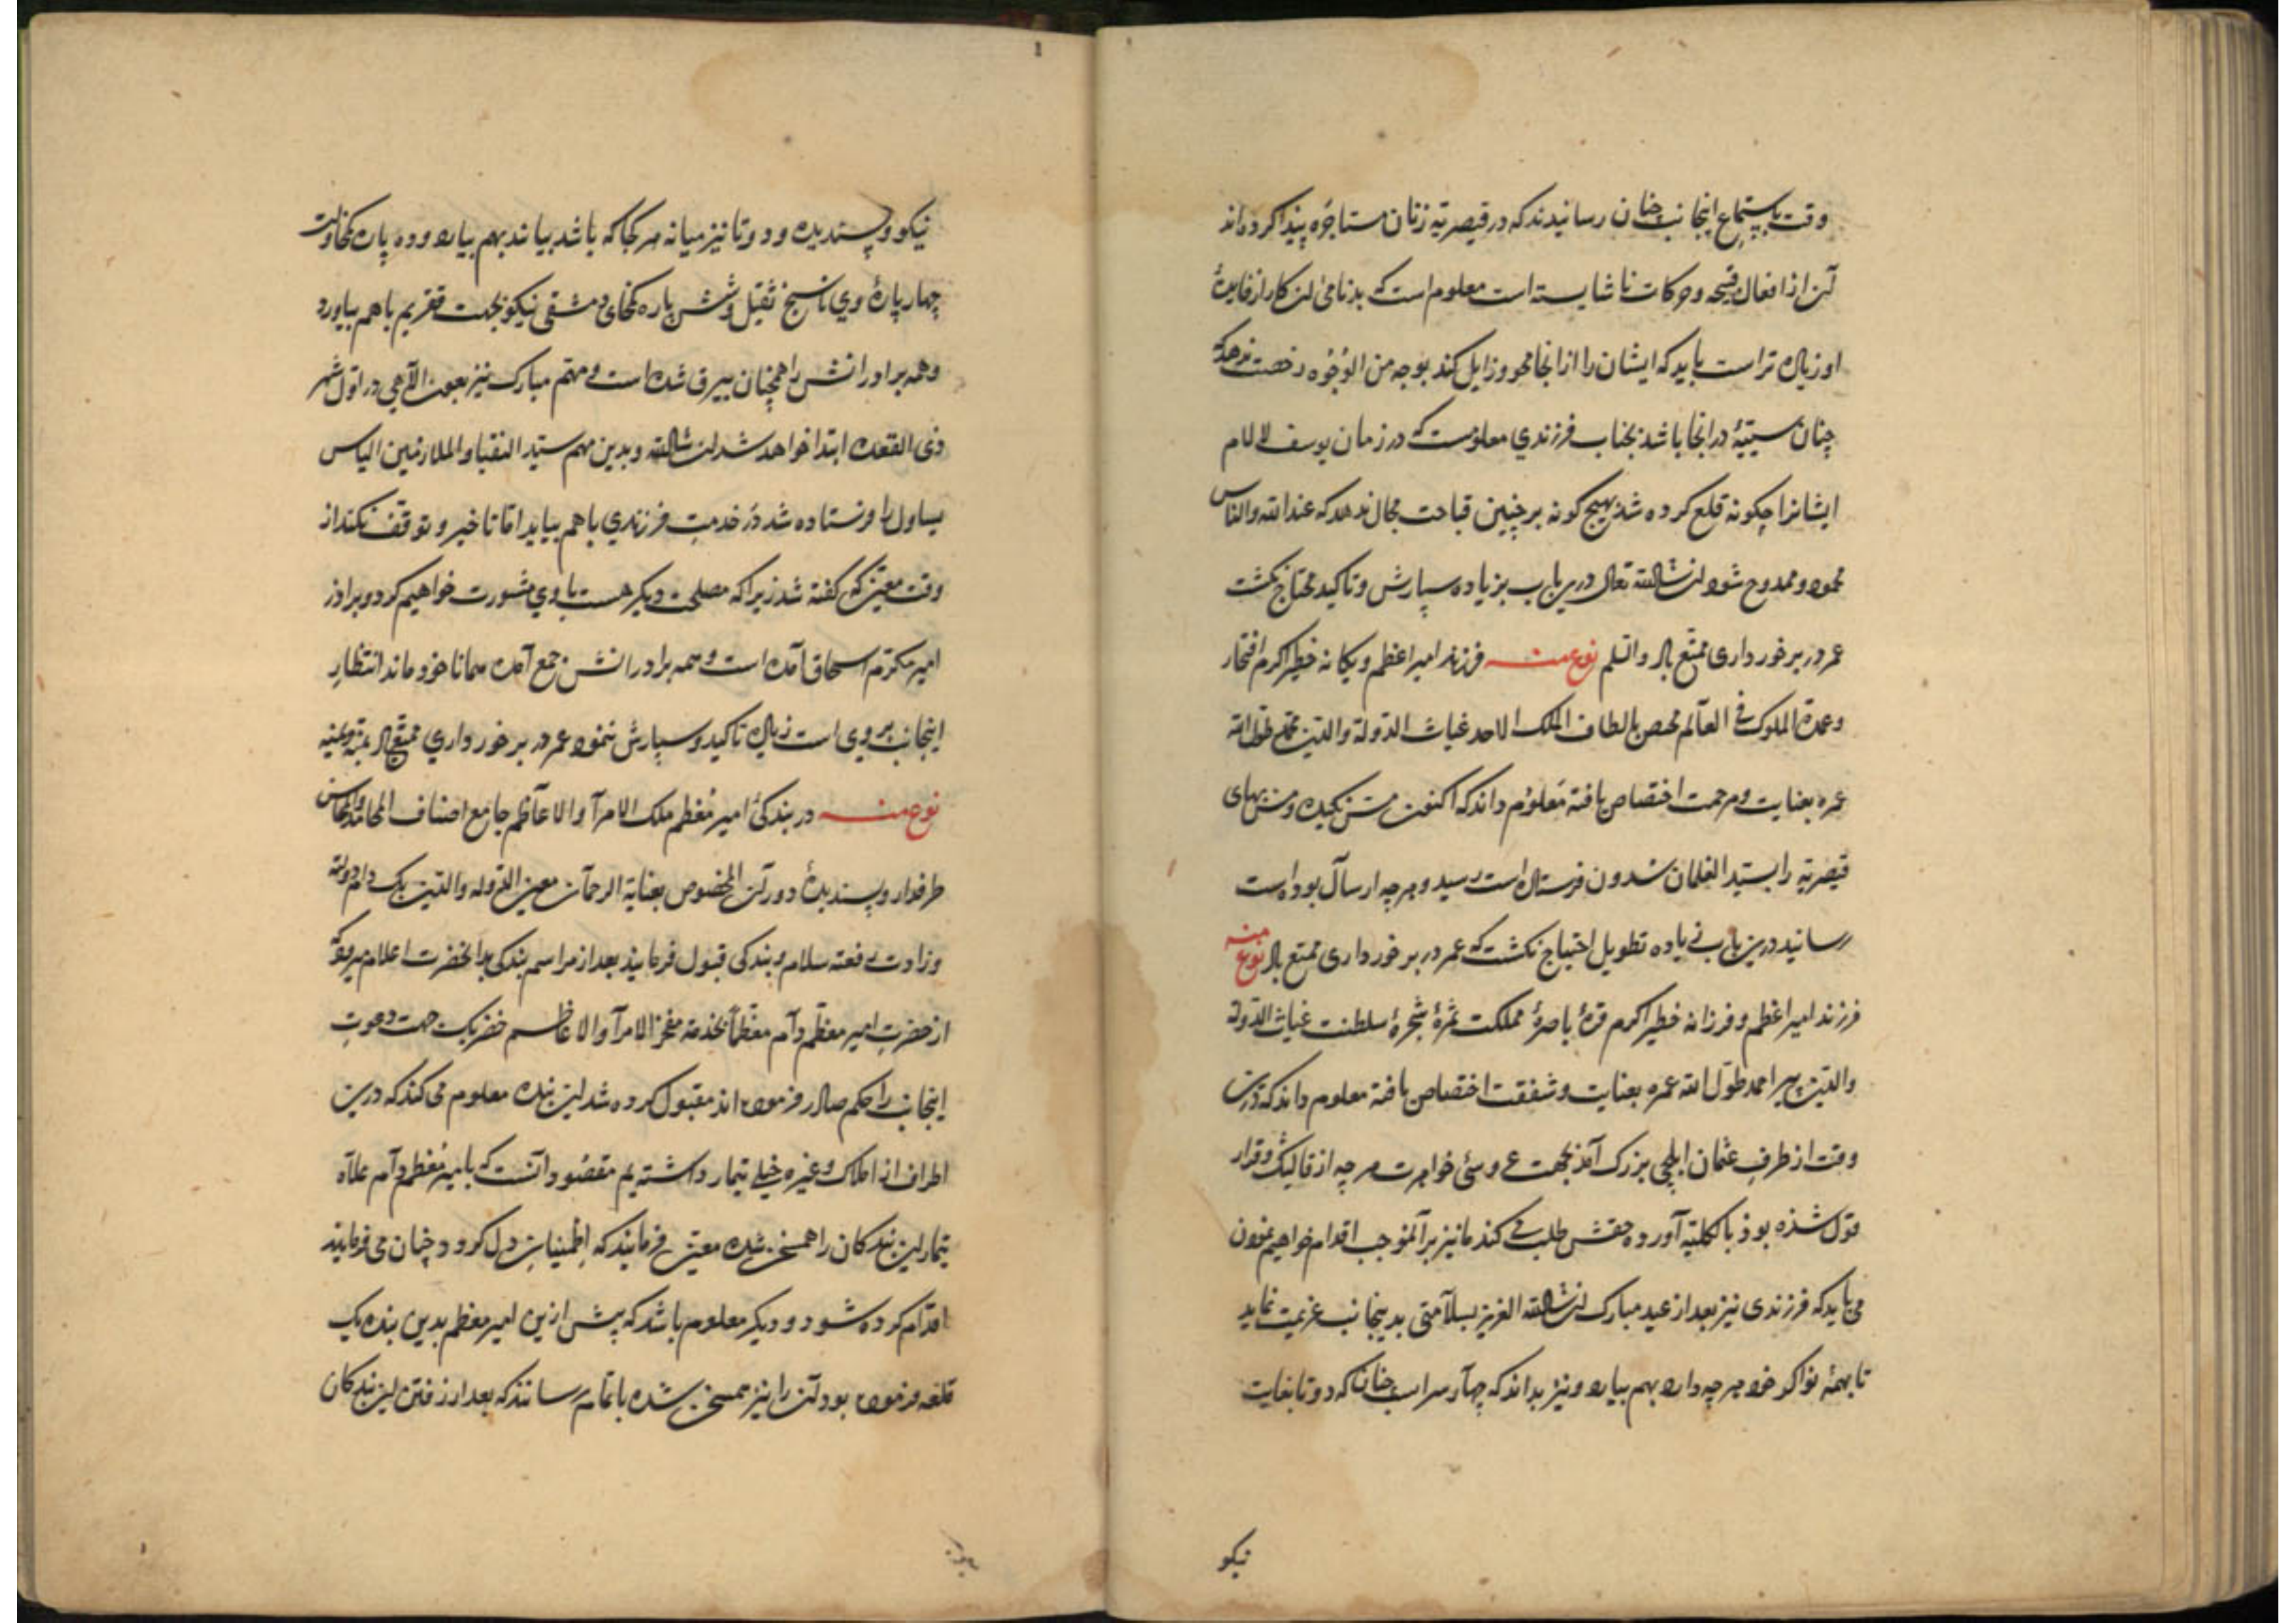 وقت باستماع اینجانب چنان رسانیدند که در قیصریه زنان مستاجره پیدا کرده‌اند
آن از افعال قبیحه و حرکات ناشایسته است معلوم است که بدنامی این کار از فایدهٔ
او زیاده‌تر است باید که ایشان را از انجا محو و زایل کند بوجه من الوجوه رخصت ندهد که
چنان سیئهٔ در انجا باشد بجناب فرزندی معلومست که در زمان یوسف
ایشانرا چکونه قلع کرده شد بهیچ کونه بر چنین قباحت مجال ندهد که عند الله والناس
محمود و ممدوح شود ان شاالله تعالی درین باب بزیاده سپارش و تاکید محتاج نکشت
عمر در برخورداری ممتع باد والسلم نوع منه فرزند امیر اعظم و یکانه خطیر اکرم افتخار
وعمدة الملوک فی العالم مختص بالطاف الملک الاحد غیاث الدولة والدین طول الله
عمره بعنایت و مرحمت اختصاص یافته معلوم داند که اکنون
قیصریه را بسید الغلمان فرستاده است رسید و هرچه ارسال بوده است
رسانید درین باب زیاده تطویل احتیاج نکشت که عمر در برخورداری ممتع باد نوع منه
فرزند امیر اعظم و فرزانه خطیر اکرم قرهٔ باصرهٔ مملکت ثمرهٔ شجرهٔ سلطنت غیاث الدولة
والدین پیر احمد طول الله عمره بعنایت و شفقت اختصاص یافته معلوم داند که درین
وقت از طرف عثمان ایلچی بزرک آمد بجهت عروسی خواهرت هرچه از قالیک و قرار
قول شده بود بالکلیه آورده حقش طلب می کند ما نیز بر آنموجب اقدام خواهیم نمودن
می باید که فرزندی نیز بعد از عید مبارک ان شاالله العزیز بسلامتی بدینجانب عزیمت نماید
تا بهمهٔ نواکر خود هرچه دارد بهم بیارد و نیز بداند که چهار سر اسب چنان که دو تا بغایت
نیکو
نیکو و پسندیده و دو تا نیز میانه هر کجا که باشد بیابد بهم بیارد و ده پاره کمخاوات
چهار پارهٔ وی ناسیخ ثقیل و شش پاره کمخای دمشقی نیکو بجهت تقدیم باهم بیاورد
وهمه برادرانش را همچنان بیرق شده است و مهم مبارک نیز بعون الآهی در اوّل شهر
ذی القعده ابتدا خواهد شد ان شاالله و بدین مهم سید النقبا والملازمین الیاس
یساول را فرستاده شد در خدمت فرزندی باهم بیاید اما تاخیر و توقف نکند از
وقت معین که گفته شد زیرا که مصلحت دیکر هست با وی مشورت خواهیم کرد و برادر
امیر مکرم اسحاق آمده است و همه برادرانش جمع آمده همانا خود ماند انتظار
اینجانب بر وی است زیاده تاکید و سپارش ننمود عمر در برخورداری ممتع باد بمنه
نوع منه در بندکی امیر معظم ملک الامرآ والاعاظم جامع اصناف المحامد والمحاسن
طرفدار و پسندیدهٔ دوران المخصوص بعنایة الرحمان معین الدوله والدین بک دام دولته
وزادت رفعته سلام و بندکی قبول فرمایند بعد از مراسم بندکی بدانحضرت اعلام میرود که
از حضرت امیر معظم دام معظما بخدمة مفخر الامرآ والاعاظم خضر بک جهت دعوت
اینجانب را حکم صادر فرموده‌اند مقبول کرده شد این بنده معلوم می کند که درین
اطراف از املاک و غیره خیلی تیمار داشته‌یم مقصود آنست که بامیر معظم دام علاه
تیمار این بندکان را همسخن شده معین فرمایند که اطمینان دل کردد چنان می فرمایند
اقدام کرده شود و دیکر معلوم باشد که پیش ازین امیر معظم بدین بنده یک
قلعه فرموده بود آن را نیز همسخن شده باتمام رسانند که بعد از رفتن این بندکان